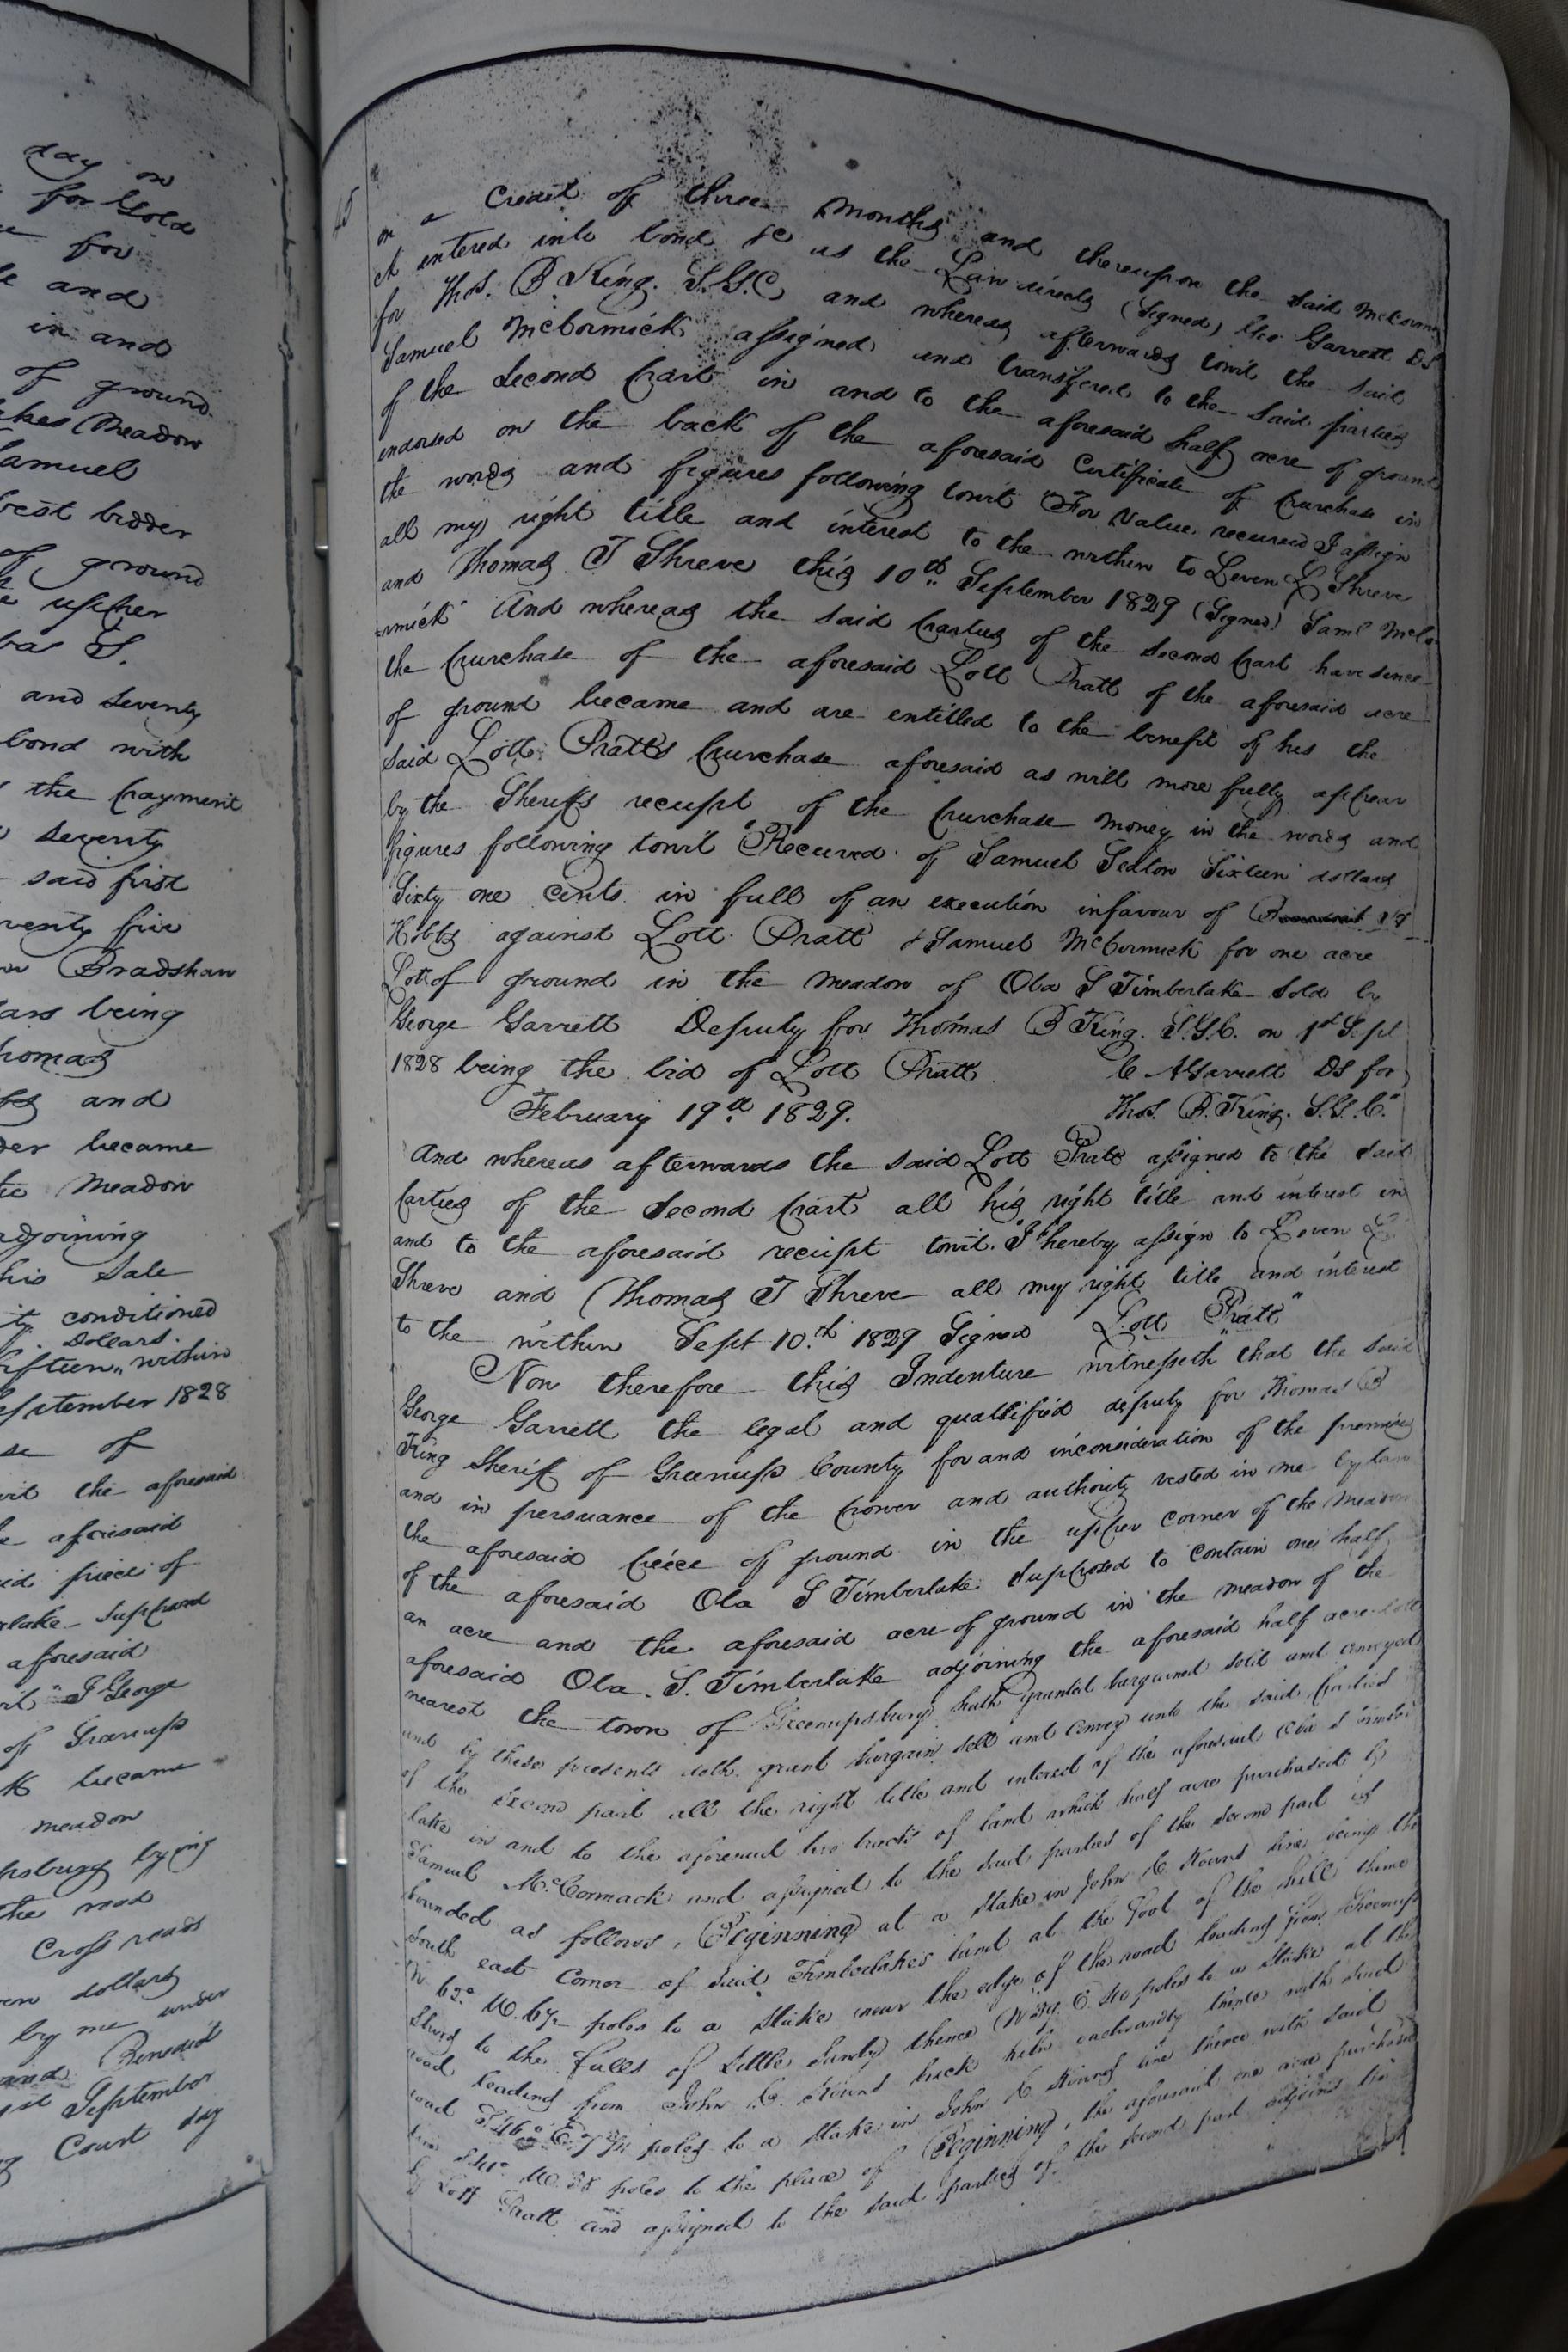 day on
for Gold
for
and
in and
of ground
Meadow
Samuel
best bidder
of ground
upper
S.
and seventy
bond with
the payment
seventy
said first
twenty five
Bradshaw
being
Thomas
and
became
Meadow
adjoining
his Sale
conditioned
Dollars.
fifteen,, within
September 1828
of
the aforesaid
aforesaid
piece of
Supposed
aforesaid
" I George
of Greenup
became
meadow
lying
the road
Cross roads
dollars
by me under
and Benedict
1st September
Court day
on a Credit of three Months and thereupon the said McCorm
ck entered into bond &c as the Law directs (Signed) Geo Garrett DS
for Thos. B King. S.G.C and whereas afterwards towit the said
Samuel McCormick assigned and transfered to the said parties
of the second part in and to the aforesaid half acre of ground
endorsed on the back of the aforesaid Certificate of purchase in
the words and figures following towit "For Value received I assign
all my right title and interest to the within to Leven L Shreve
and Thomas T Shreve this 10th September 1829 (Signed) Saml McCo
rmick" And whereas the said parties of the second part have since
the purchase of the aforesaid Lott Pratt of the aforesaid acre
of ground became and are entitled to the benefit of his the
said Lott Pratts purchase aforesaid as will more fully appear
by the Sheriffs receipt of the purchase money in the words and
figures following towit "Received of Samuel Seaton Sixteen dollars
Sixty one cents in full of an execution infavour of
Hobbs against Lott Pratt & Samuel McCormick for one acre
Lott of ground in the meadow of Oba S Timberlake Sold by
George Garrett Deputy for Thomas B King. S.G.C. on 1st Sept
1828 being the bid of Lott Pratt Garrett DS for
February 19th 1829. Thos. B. King. S.G.C."
And whereas afterwards the said Lott Pratt assigned to the said
parties of the second part all his right title and interest in
and to the aforesaid receipt towit. "I hereby assign to Leven L
Shreve and Thomas T Shreve all my right title and interest
to the within Sept 10.th 1829 Signed Lott Pratt"
Now therefore this Indenture witnesseth that the said
George Garrett the legal and quallified deputy for Thomas B
King Sheriff of Greenup County for and inconsideration of the premises
and in persuance of the power and authority vested in me by law
the aforesaid peece of ground in the upper corner of the Meadow
of the aforesaid Oba S Timberlake Supposed to contain one half
an acre and the aforesaid acre of ground in the meadow of the
aforesaid Oba. S. Timberlake adjoining the aforesaid half acre lott
nearest the town of Greenupsburg hath granted bargained sold and conveyed
and by these presents doth grant bargain sell and convey unto the said parties
of the second part all the right title and interest of the aforesaid Oba S Timber
lake in and to the aforesaid two tracts of land which half acre purchased by
Samuel McCormack and assigned to the said parties of the second part is
bounded as follows, Beginning at a Stake in John C. Kouns line, being the
South east Corner of said Timberlakes land at the foot of the hill thence
N 62° W. 6½ poles to a Stake near the edge of the road leading from Greenups
burg to the falls of Little Sandy thence poles to a Stake at the
road leading from John C. Kouns brick kiln eastwardly thence with said
road S 46° E. 7¾ poles to a Stake in John C Kouns line thence with said
line W. 38 poles to the place of Beginning, the aforesaid one acre purchased
by Lott Pratt and assigned to the said parties of the second part adjoins the